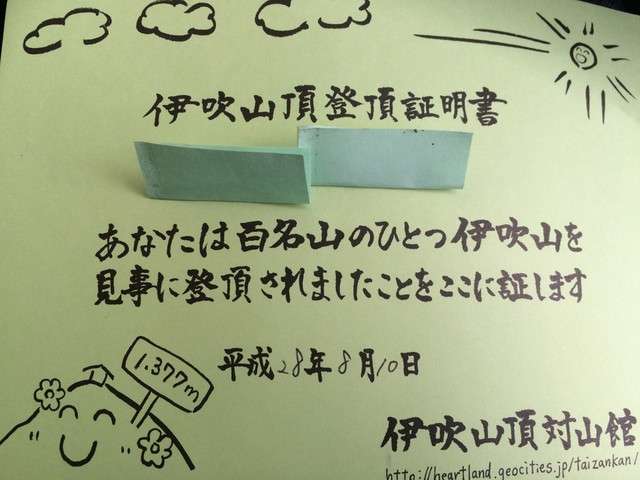 伊吹山頂登頂証明書
あなたは百名山のひとつ伊吹山を
見事に登頂されましたことをここに証します
1.377m
平成28年8月10日
伊吹山頂対山館
http://heartland.geocities.jp/taizankan/